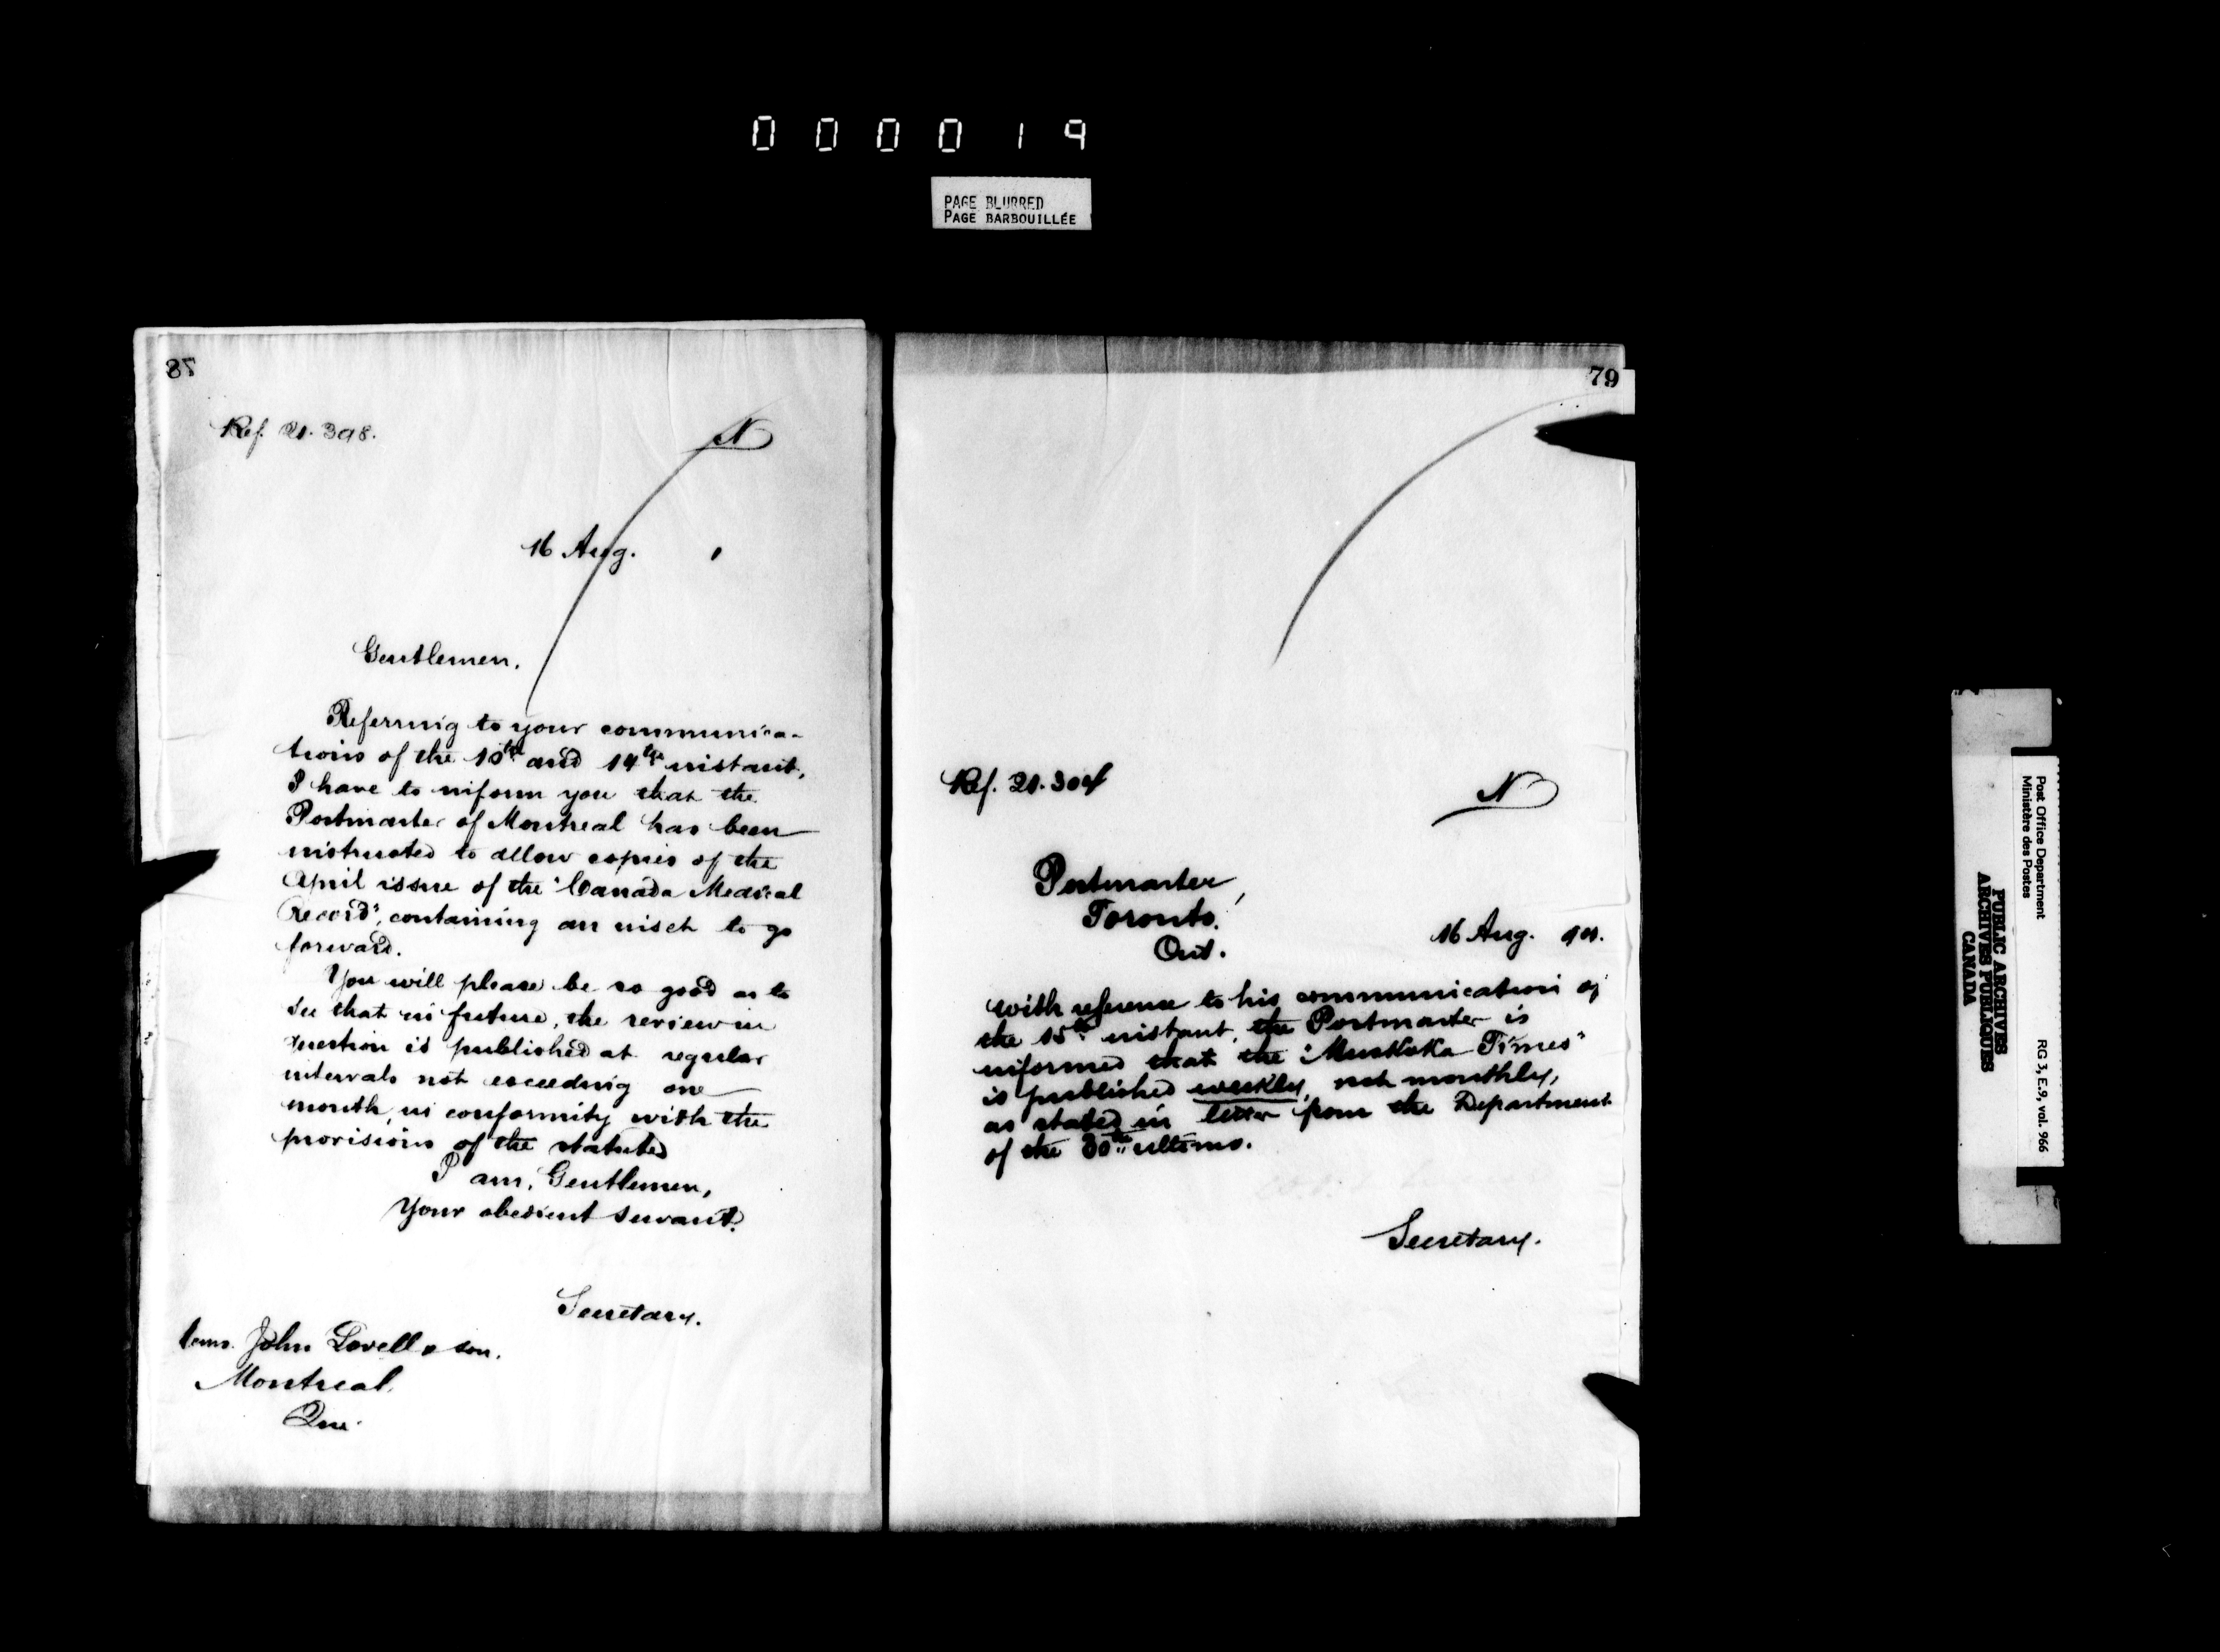 000019
PAGE BLURRED
PAGE BARBOUILLÉE
78
Ref. 21.398.
N
16 Aug.
Gentlemen,
Referring to your communica-
tions of the 10th and 14th instant,
I have to inform you that the
Postmaster of Montreal has been
instructed to allow copies of the
April issue of the "Canada Medical
Record", containing an inset to go
forward.
You will please be so good as to
see that in future, the review in
question is published at regular
intervals not exceeding one
month, in conformity with the
provisions of the statutes
I am, Gentlemen,
Your obedient servant.
Secretary.
John Lovell & son.
Montreal,
Que.
79
Ref. 21.304
N
Postmaster,
Toronto.
Ont.
16 Aug.
With reference to his communication of
the 15th instant, the Postmaster is
informed that the "Muskoka Times"
is published weekly, not monthly,
as stated in letter from the Department
of the 30th ultimo.
Secretary.
Post Office Department
Ministère des Postes
RG 3, E.9, vol. 966
PUBLIC ARCHIVES
ARCHIVES PUBLIQUES
CANADA